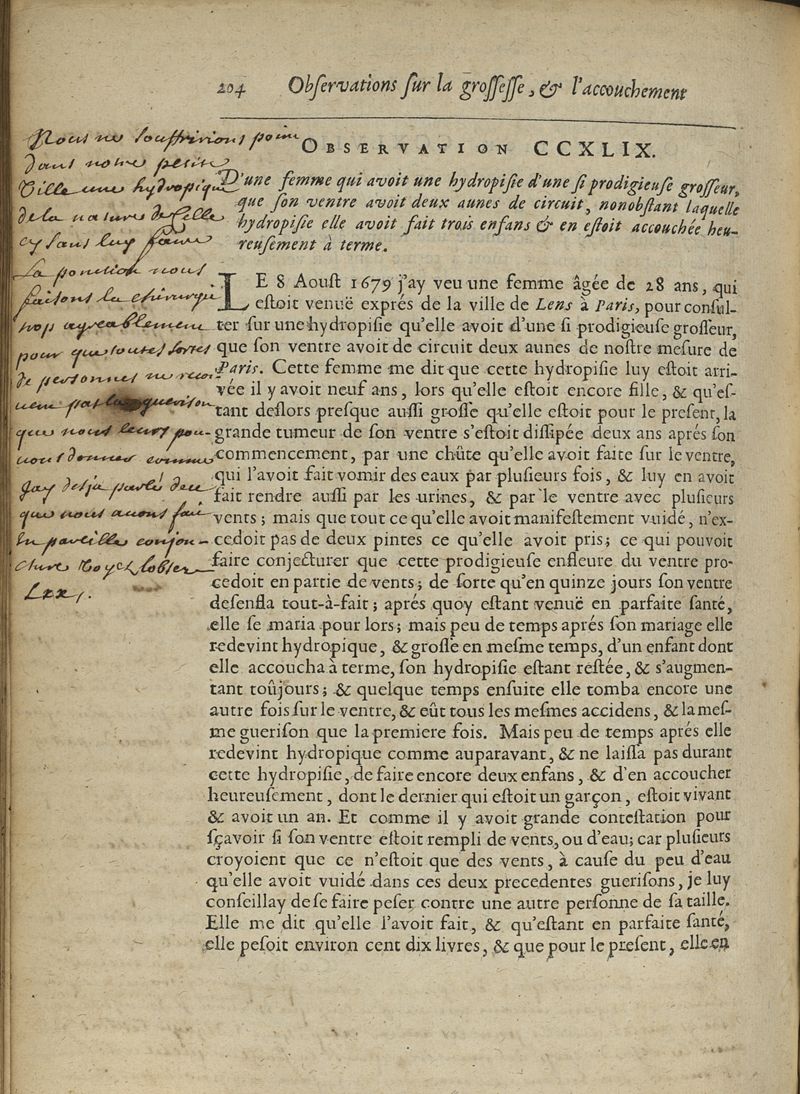 204 Observations sur la grossesse, & l'accouchement
OBSERVATION CCXLIX.
D'une femme qui avoit une hydropisie d'une si prodigieuse grosseur,
que son ventre avoit deux aunes de circuit, nonobstant laquelle
hydropisie elle avoit fait trois enfans & en estoit accouchée heu-
reusement à terme.
LE 8 Aoust 1679 j'ay veu une femme âgée de 28 ans, qui
estoit venuë exprés de la ville de Lens à Paris, pour consul-
ter sur une hydropisie qu'elle avoit d'une si prodigieuse grosseur,
que son ventre avoit de circuit deux aunes de nostre mesure de
Paris. Cette femme me dit que cette hydropisie luy estoit arri-
vée il y avoit neuf ans, lors qu'elle estoit encore fille, & qu'es-
tant deslors presque aussi grosse qu'elle estoit pour le present, la
grande tumeur de son ventre s'estoit dissipée deux ans aprés son
commencement, par une chûte qu'elle avoit faite sur le ventre,
qui l'avoit fait vomir des eaux par plusieurs fois, & luy en avoit
fait rendre aussi par les urines, & par le ventre avec plusieurs
vents ; mais que tout ce qu'elle avoit manifestement vuidé, n'ex-
cedoit pas de deux pintes ce qu'elle avoit pris ; ce qui pouvoit
faire conjecturer que cette prodigieuse enfleure du ventre pro-
cedoit en partie de vents ; de sorte qu'en quinze jours son ventre
desenfla tout-à-fait ; aprés quoy estant venuë en parfaite santé,
elle se maria pour lors ; mais peu de temps aprés son mariage elle
redevint hydropique, & grosse en mesme temps, d'un enfant dont
elle accoucha à terme, son hydropisie estant restée, & s'augmen-
tant toûjours ; & quelque temps ensuite elle tomba encore une
autre fois sur le ventre, & eût tous les mesmes accidens, & la mes-
me guerison que la premiere fois. Mais peu de temps aprés elle
redevint hydropique comme auparavant, & ne laissa pas durant
cette hydropisie, de faire encore deux enfans, & d'en accoucher
heureusement, dont le dernier qui estoit un garçon, estoit vivant
& avoit un an. Et comme il y avoit grande contestation pour
sçavoir si son ventre estoit rempli de vents, ou d'eau ; car plusieurs
croyoient que ce n'estoit que des vents, à cause du peu d'eau
qu'elle avoit vuidé dans ces deux precedentes guerisons, je luy
conseillay de se faire peser contre une autre personne de sa taille.
Elle me dit qu'elle l'avoit fait, & qu'estant en parfaite santé,
elle pesoit environ cent dix livres, & que pour le present, elle en
Nous ne souffririons point
dans notre petite
Ville une hydropique
de la nature de celle
cy sans luy faire
la ponction nous
faisons la chirurgie
trop agreablement
pour que toutes sortes
de personnes ne
pas la guerison
que nous leurs pou-
vons donner comme
j'ay desja parlé de
que nous avons fait
en pareille conjon-
cture